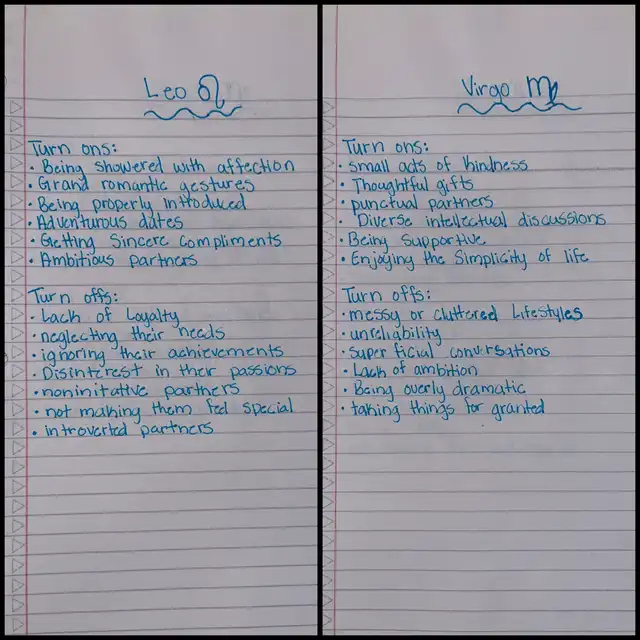 Leo ♌
Turn ons:
• Being showered with affection
• Grand romantic gestures
• Being properly introduced
• Adventurous dates
• Getting Sincere compliments
• Ambitious partners
Turn offs:
• Lack of Loyalty
• neglecting their needs
• ignoring their achievements
• Disinterest in their passions
• noninitative partners
• not making them feel special
• introverted partners
Virgo ♍
Turn ons:
• small acts of kindness
• Thoughtful gifts
• punctual partners
• Diverse intellectual discussions
• Being supportive
• Enjoying the Simplicity of life
Turn offs:
• messy or cluttered Lifestyles
• unreliability
• superficial conversations
• Lack of ambition
• Being overly dramatic
• taking things for granted